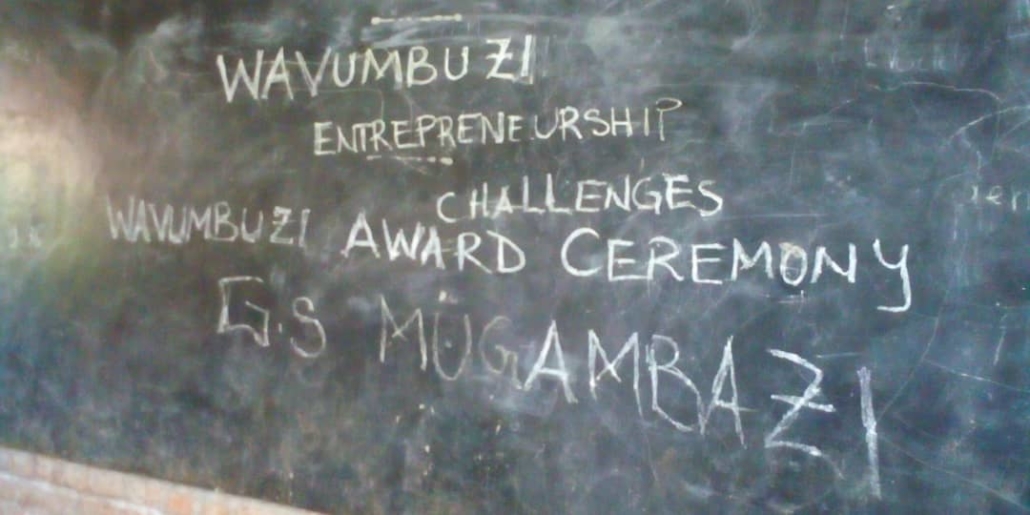 WAVUMBUZI
ENTREPRENEURSHIP
CHALLENGES
WAVUMBUZI AWARD CEREMONY
G.S MUGAMBAZI